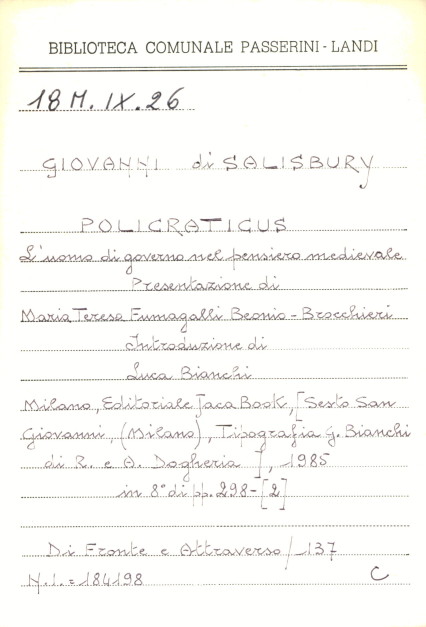 BIBLIOTECA COMUNALE PASSERINI-LANDI
18 M. IX. 26
GIOVANNI di SALISBURY
POLICRATICUS
L'uomo di governo nel pensiero medievale
Presentazione di
Maria Teresa Fumagalli Beonio-Brocchieri
Introduzione di
Luca Bianchi
Milano, Editoriale Jaca Book, [Sesto San
Giovanni, (Milano), Tipografia G. Bianchi
di R. e A. Dogheria], 1985
in 8° di pp. 298-[2]
Di Fronte e Attraverso/137
N.I.=184198 C